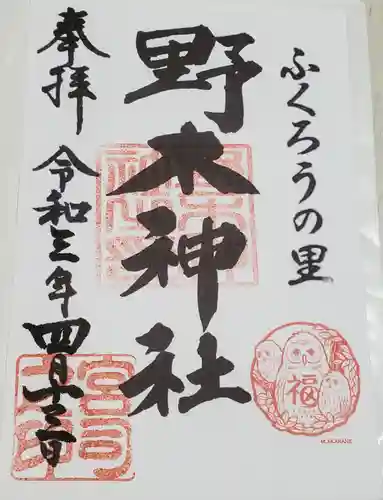 ふくろうの里
野木神社
奉拝
令和三年四月十三日
福
M.AKABANE